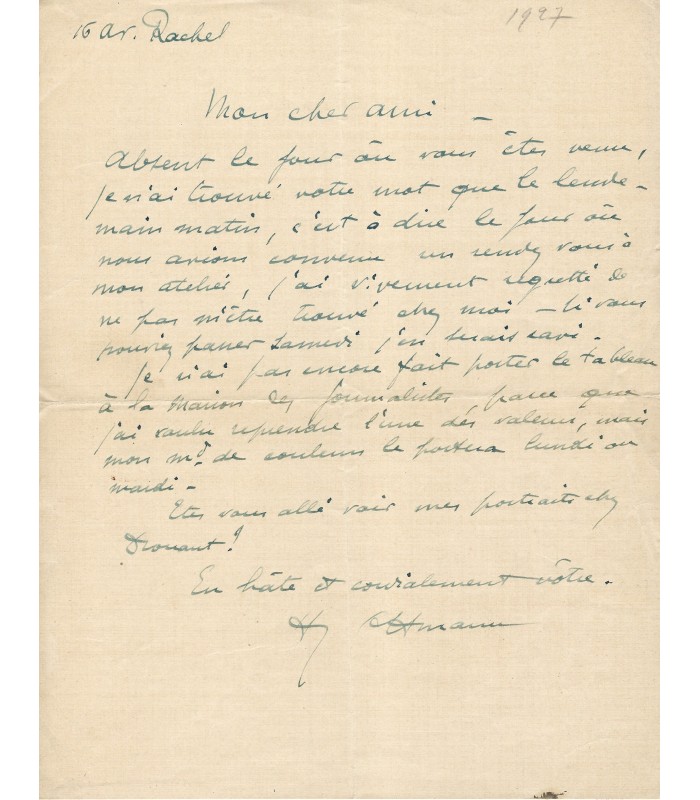 16 av. Rachel
1927
Mon cher ami -
Absent le jour où vous êtes venu,
je n'ai trouvé votre mot que le lende-
main matin, c'est à dire le jour où
nous avions convenu un rendez vous à
mon atelier, j'ai vivement regretté de
ne pas m'être trouvé chez moi - Si vous
pouviez passer samedi j'en serais ravi -
Je n'ai pas encore fait porter le tableau
à la Maison des Journalistes, parce que
j'ai voulu reprendre l'une des valeurs, mais
mon md de couleurs le portera lundi ou
mardi -
Etes vous allé voir mes portraits chez
Drouant ?
En hâte et cordialement vôtre.
Hy Ottmann